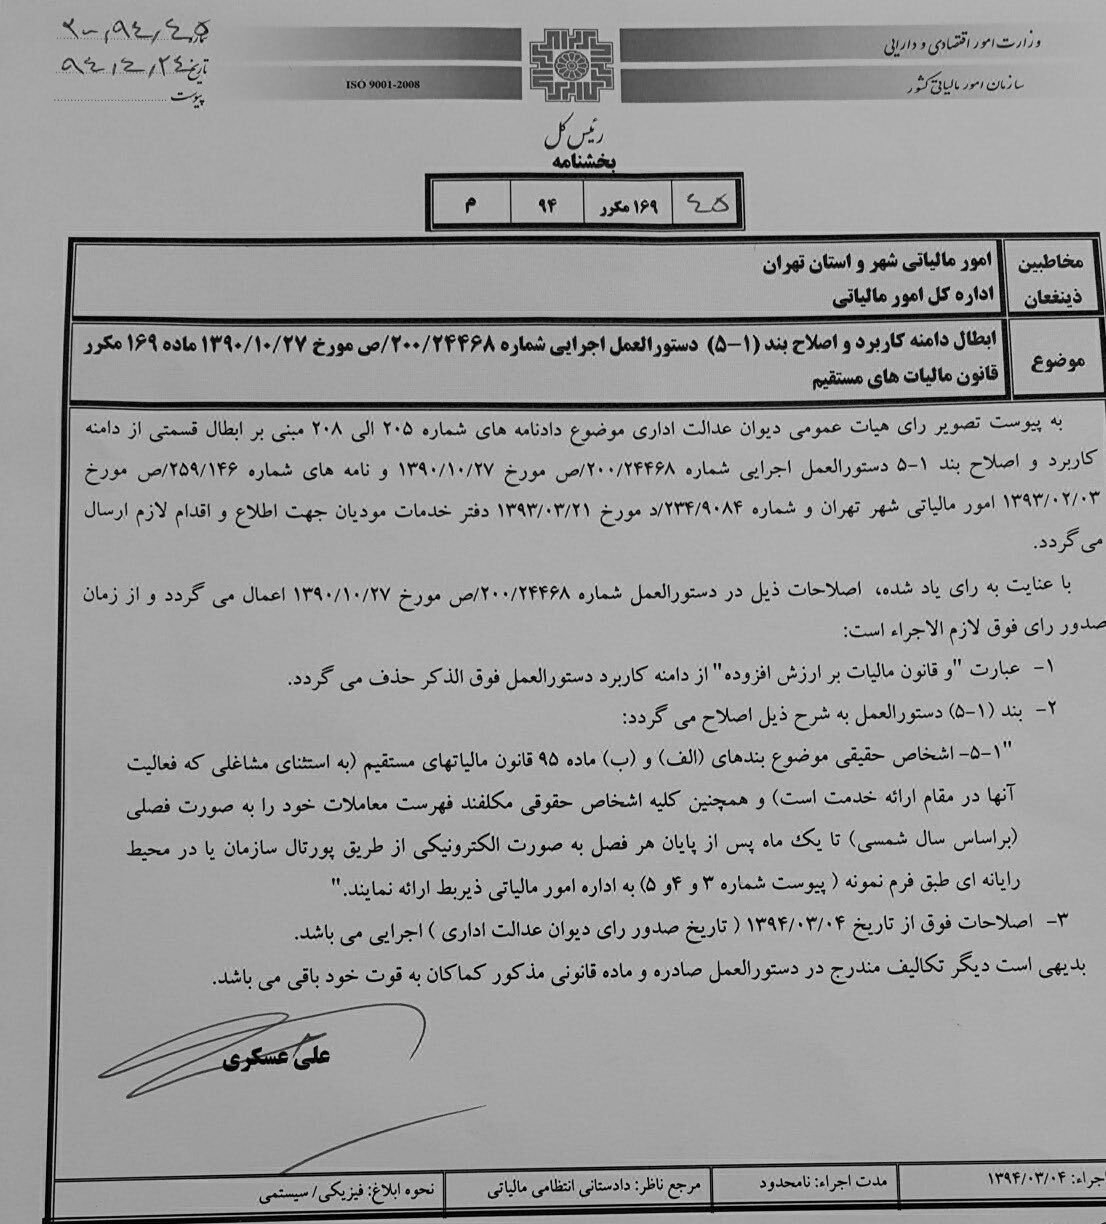 وزارت امور اقتصادی و دارایی
سازمان امور مالیاتی کشور
ISO 9001-2008
شماره ۲۰۰,۹۴,۴۵
تاریخ ۹۴,۴,۲۴
پیوست
رئیس کل
بخشنامه
۴۵ ۱۶۹ مکرر ۹۴ م
مخاطبین
ذینفعان
امور مالیاتی شهر و استان تهران
اداره کل امور مالیاتی
موضوع
ابطال دامنه کاربرد و اصلاح بند (۱-۵) دستورالعمل اجرایی شماره ۲۰۰/۲۴۴۶۸/ص مورخ ۱۳۹۰/۱۰/۲۷ ماده ۱۶۹ مکرر
قانون مالیات های مستقیم
به پیوست تصویر رای هیات عمومی دیوان عدالت اداری موضوع دادنامه های شماره ۲۰۵ الی ۲۰۸ مبنی بر ابطال قسمتی از دامنه
کاربرد و اصلاح بند ۱-۵ دستورالعمل اجرایی شماره ۲۰۰/۲۴۴۶۸/ص مورخ ۱۳۹۰/۱۰/۲۷ و نامه های شماره ۲۵۹/۱۴۶/ص مورخ
۱۳۹۳/۰۲/۰۳ امور مالیاتی شهر تهران و شماره ۲۳۴/۹۰۸۴/د مورخ ۱۳۹۳/۰۳/۲۱ دفتر خدمات مودیان جهت اطلاع و اقدام لازم ارسال
می گردد.
با عنایت به رای یاد شده، اصلاحات ذیل در دستورالعمل شماره ۲۰۰/۲۴۴۶۸/ص مورخ ۱۳۹۰/۱۰/۲۷ اعمال می گردد و از زمان
صدور رای فوق لازم الاجراء است:
۱- عبارت "و قانون مالیات بر ارزش افزوده" از دامنه کاربرد دستورالعمل فوق الذکر حذف می گردد.
۲- بند (۱-۵) دستورالعمل به شرح ذیل اصلاح می گردد:
"۱-۵- اشخاص حقیقی موضوع بندهای (الف) و (ب) ماده ۹۵ قانون مالیاتهای مستقیم (به استثنای مشاغلی که فعالیت
آنها در مقام ارائه خدمت است) و همچنین کلیه اشخاص حقوقی مکلفند فهرست معاملات خود را به صورت فصلی
(براساس سال شمسی) تا یک ماه پس از پایان هر فصل به صورت الکترونیکی از طریق پورتال سازمان یا در محیط
رایانه ای طبق فرم نمونه ( پیوست شماره ۳ و ۴و ۵) به اداره امور مالیاتی ذیربط ارائه نمایند."
۳- اصلاحات فوق از تاریخ ۱۳۹۴/۰۳/۰۴ ( تاریخ صدور رای دیوان عدالت اداری ) اجرایی می باشد.
بدیهی است دیگر تکالیف مندرج در دستورالعمل صادره و ماده قانونی مذکور کماکان به قوت خود باقی می باشد.
علی عسکری
اجراء: ۱۳۹۴/۰۳/۰۴ مدت اجراء: نامحدود مرجع ناظر: دادستانی انتظامی مالیاتی نحوه ابلاغ: فیزیکی/ سیستمی